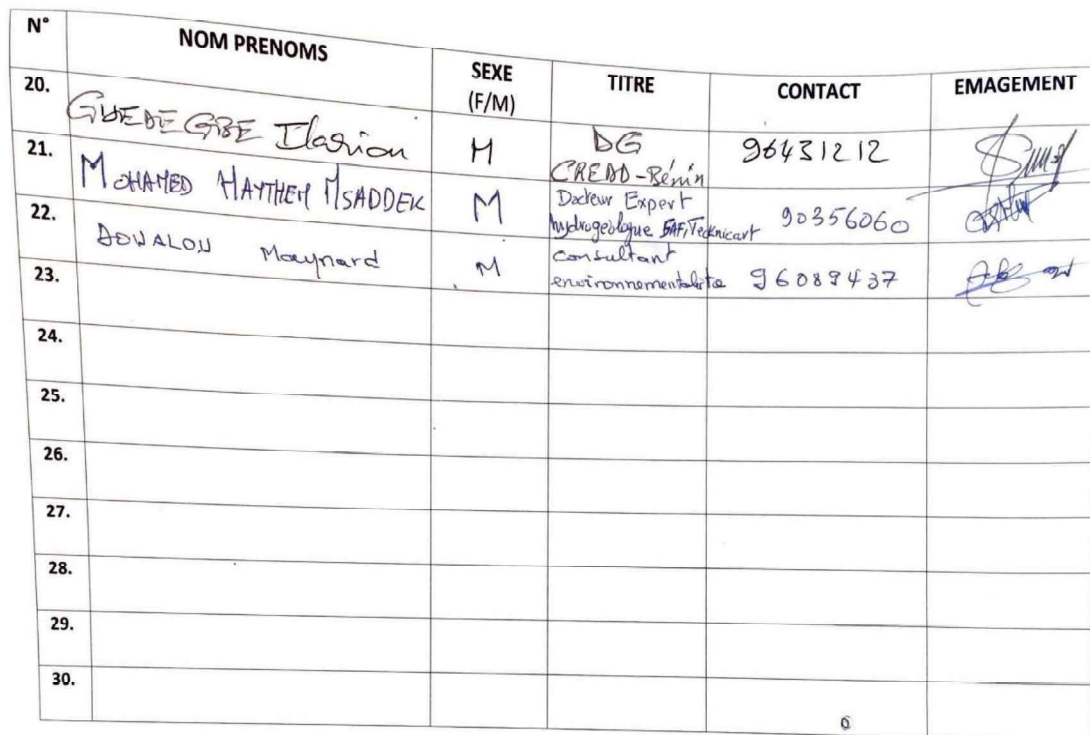 N° NOM PRENOMS SEXE (F/M) TITRE CONTACT EMAGEMENT
20. GUEDEGBE Ilarion M DG CREDD-Bénin 96431212
21. MOHAMED HAYTHEM MSADDEK M Docteur Expert hydrogéologue SAFI/Technicart 90356060
22. ADUALOU Maynard M consultant environnementaliste 96089437
23.
24.
25.
26.
27.
28.
29.
30.